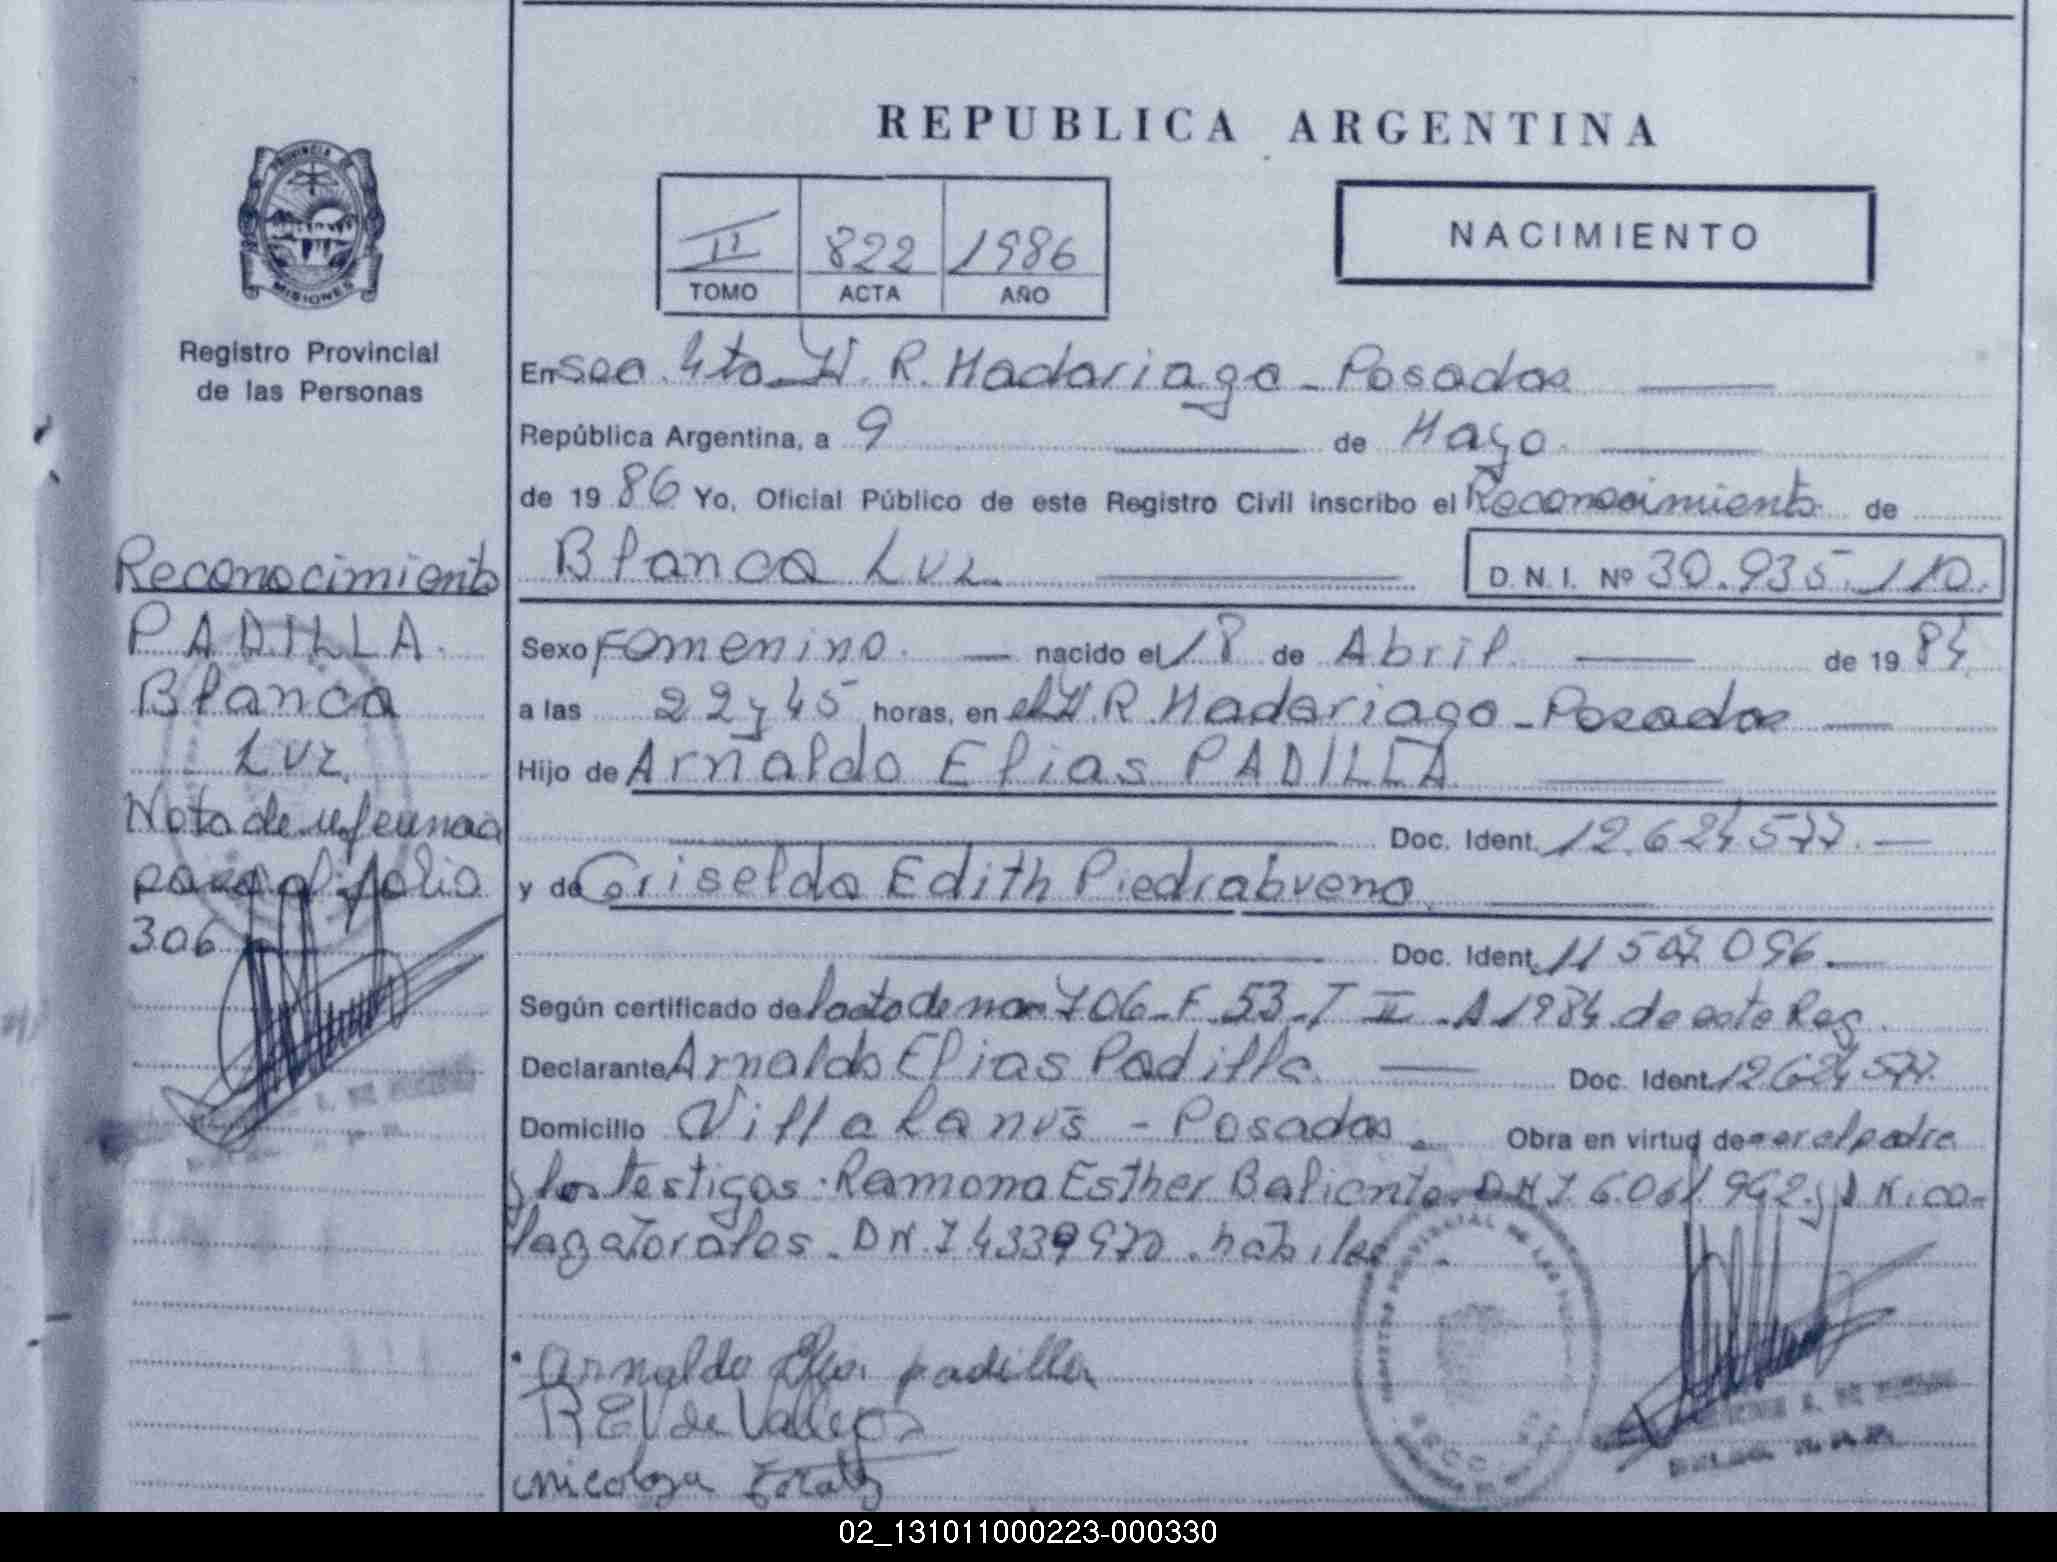 REPUBLICA ARGENTINA
PROVINCIA DE
MISIONES
Registro Provincial
de las Personas
II 822 1986
TOMO ACTA AÑO
NACIMIENTO
En Sec. 4ta H. R. Madariaga - Posadas
República Argentina, a 9 de Mayo
de 1986 Yo, Oficial Público de este Registro Civil inscribo el Reconocimiento de
Blanca Luz D.N.I. Nº 30.935.110.
Sexo Femenino. nacido el 18 de Abril de 1984
a las 22 y 45 horas, en el H R. Madariaga - Posadas
Hijo de Arnaldo Elias PADILLA
Doc. Ident. 12.624577.
y de Griselda Edith Piedrabuena
Doc. Ident. 11 507 096.
Según certificado de 706 - F 53 - T II - A 1984 de este Reg.
Declarante Arnaldo Elias Padilla Doc. Ident. 12624577
Domicilio Villa Lanús - Posadas Obra en virtud de ser el padre
y los testigos. Ramona Esther Baliente. DNI 6.061.942. y
DNI 4339970. habiles
Arnaldo Elias padilla
R E V de Vallejos
Reconocimiento
PADILLA
Blanca
Luz
Nota de referencia
pasa al folio
306
02_131011000223-000330